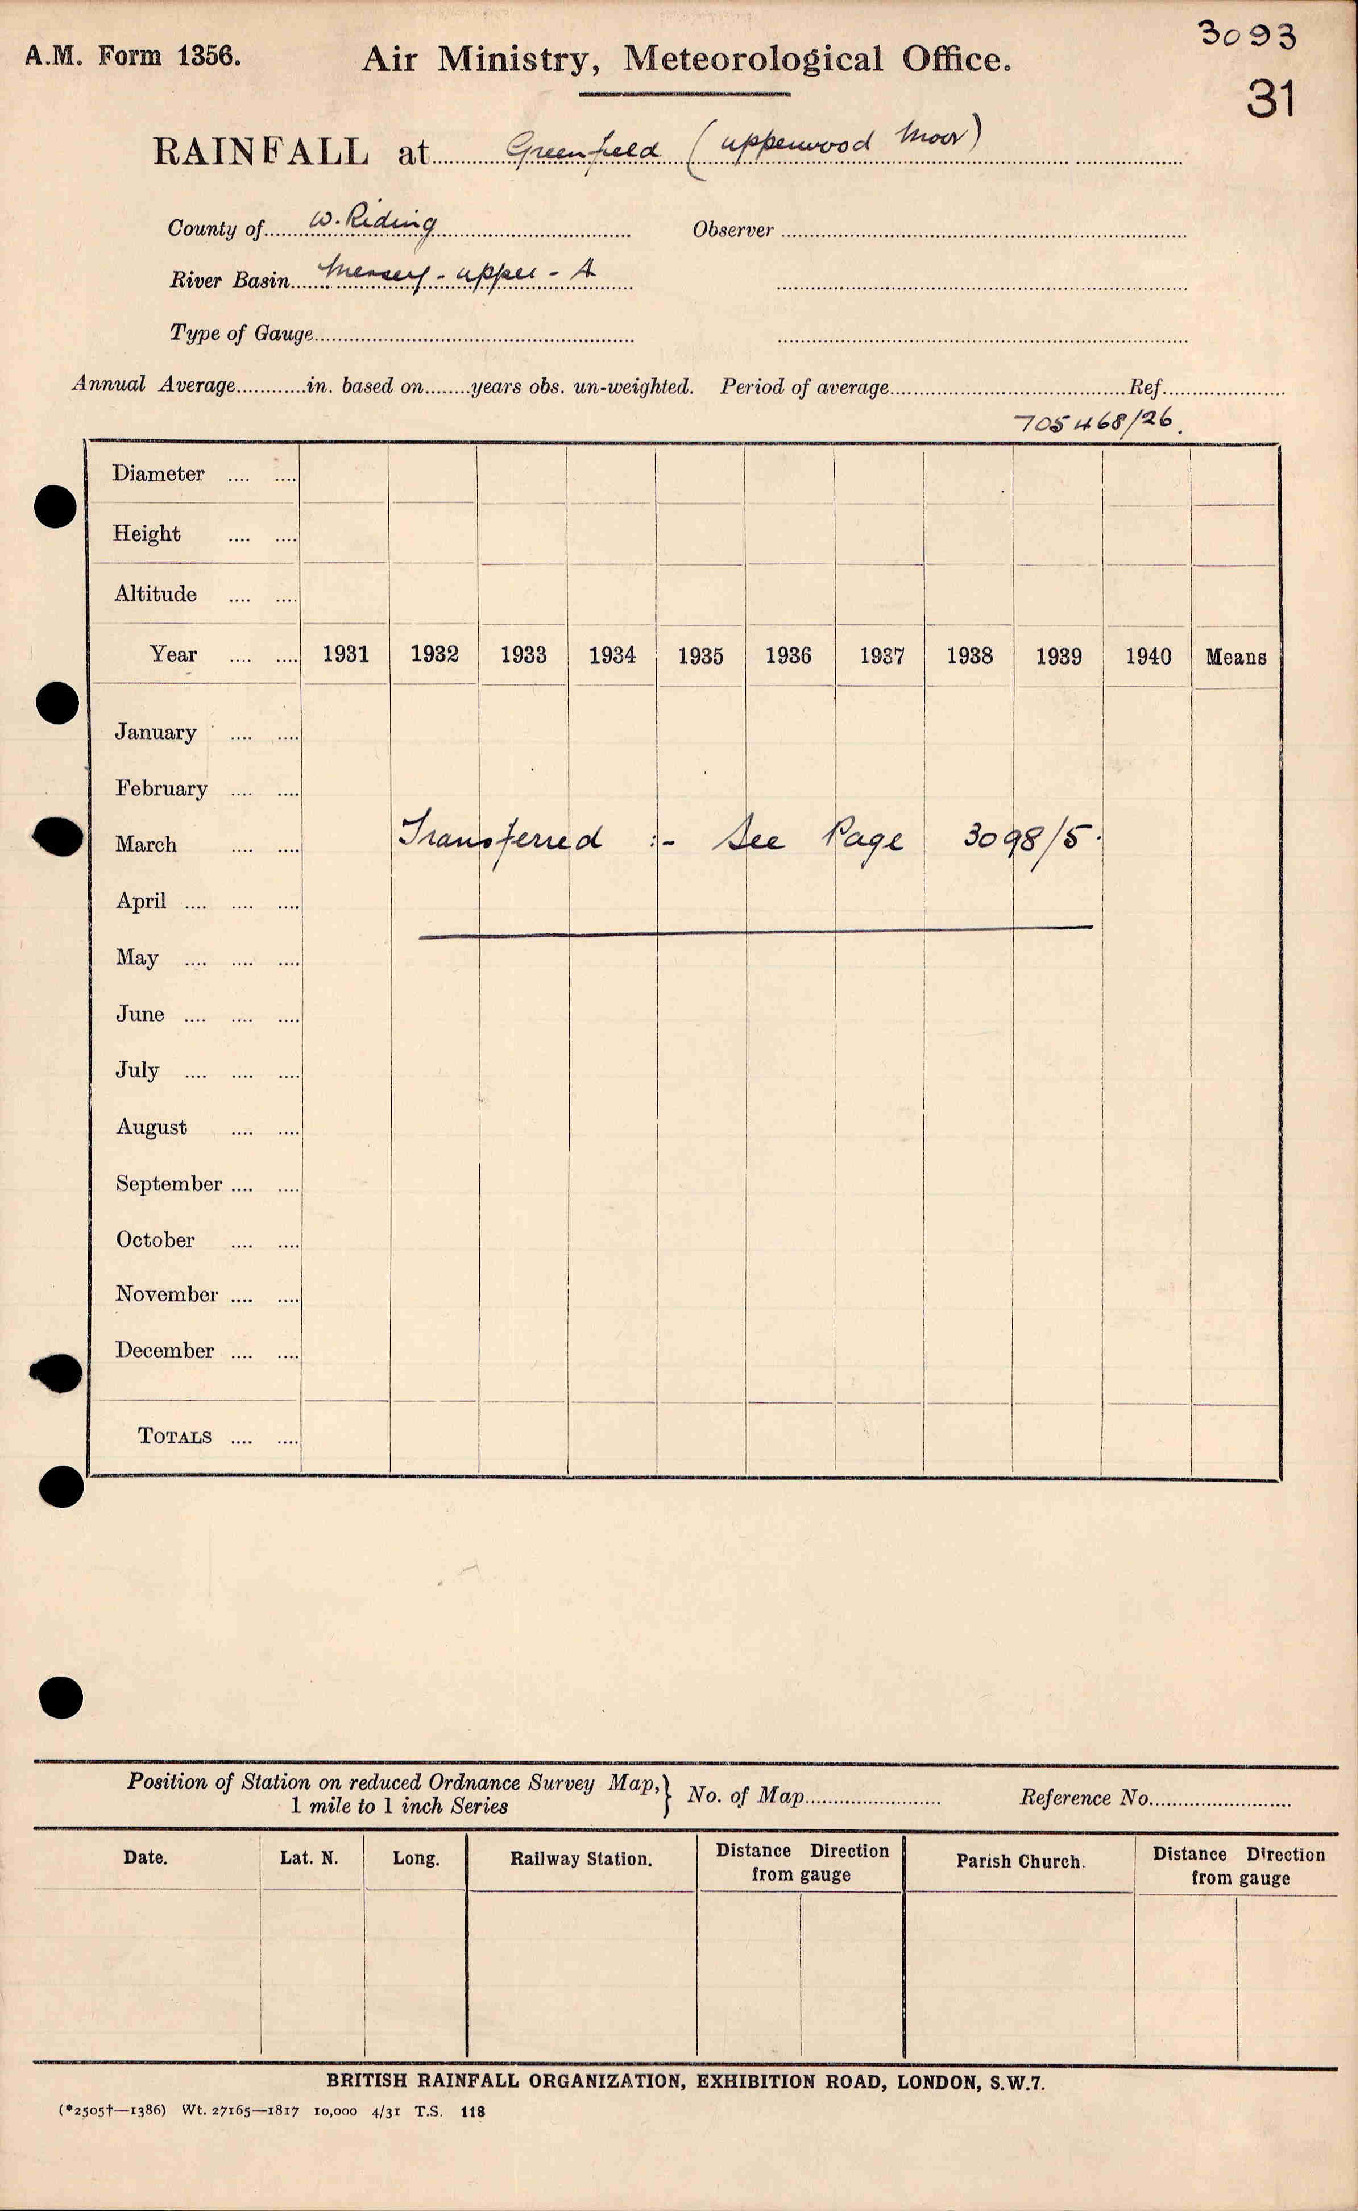 3093
A.M. Form 1356. Air Ministry, Meteorological Office.
31
RAINFALL at Greenfield (Upperwood Moor)
County of W. Riding Observer
River Basin Mersey - upper - A
Type of Gauge
Annual Average in. based on years obs. un-weighted. Period of average Ref.
705468/26.
Diameter
Height
Altitude
Year 1931 1932 1933 1934 1935 1936 1937 1938 1939 1940 Means
January
February
March Transferred :- See Page 3098/5.
April
May
June
July
August
September
October
November
December
TOTALS
Position of Station on reduced Ordnance Survey Map, } No. of Map Reference No.
1 mile to 1 inch Series
Date. Lat. N. Long. Railway Station. Distance Direction from gauge Parish Church. Distance Direction from gauge
BRITISH RAINFALL ORGANIZATION, EXHIBITION ROAD, LONDON, S.W.7.
(*2505†—1386) Wt. 27165—1817 10,000 4/31 T.S. 118